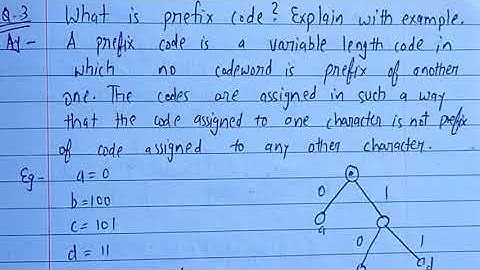 Q.3 What is prefix code? Explain with example.
Ay - A prefix code is a variable length code in
which no codeword is prefix of another
one. The codes are assigned in such a way
that the code assigned to one character is not prefix
of code assigned to any other character.
Eg - a = 0
b = 100
c = 101
d = 11
0 1
a
0 1
d